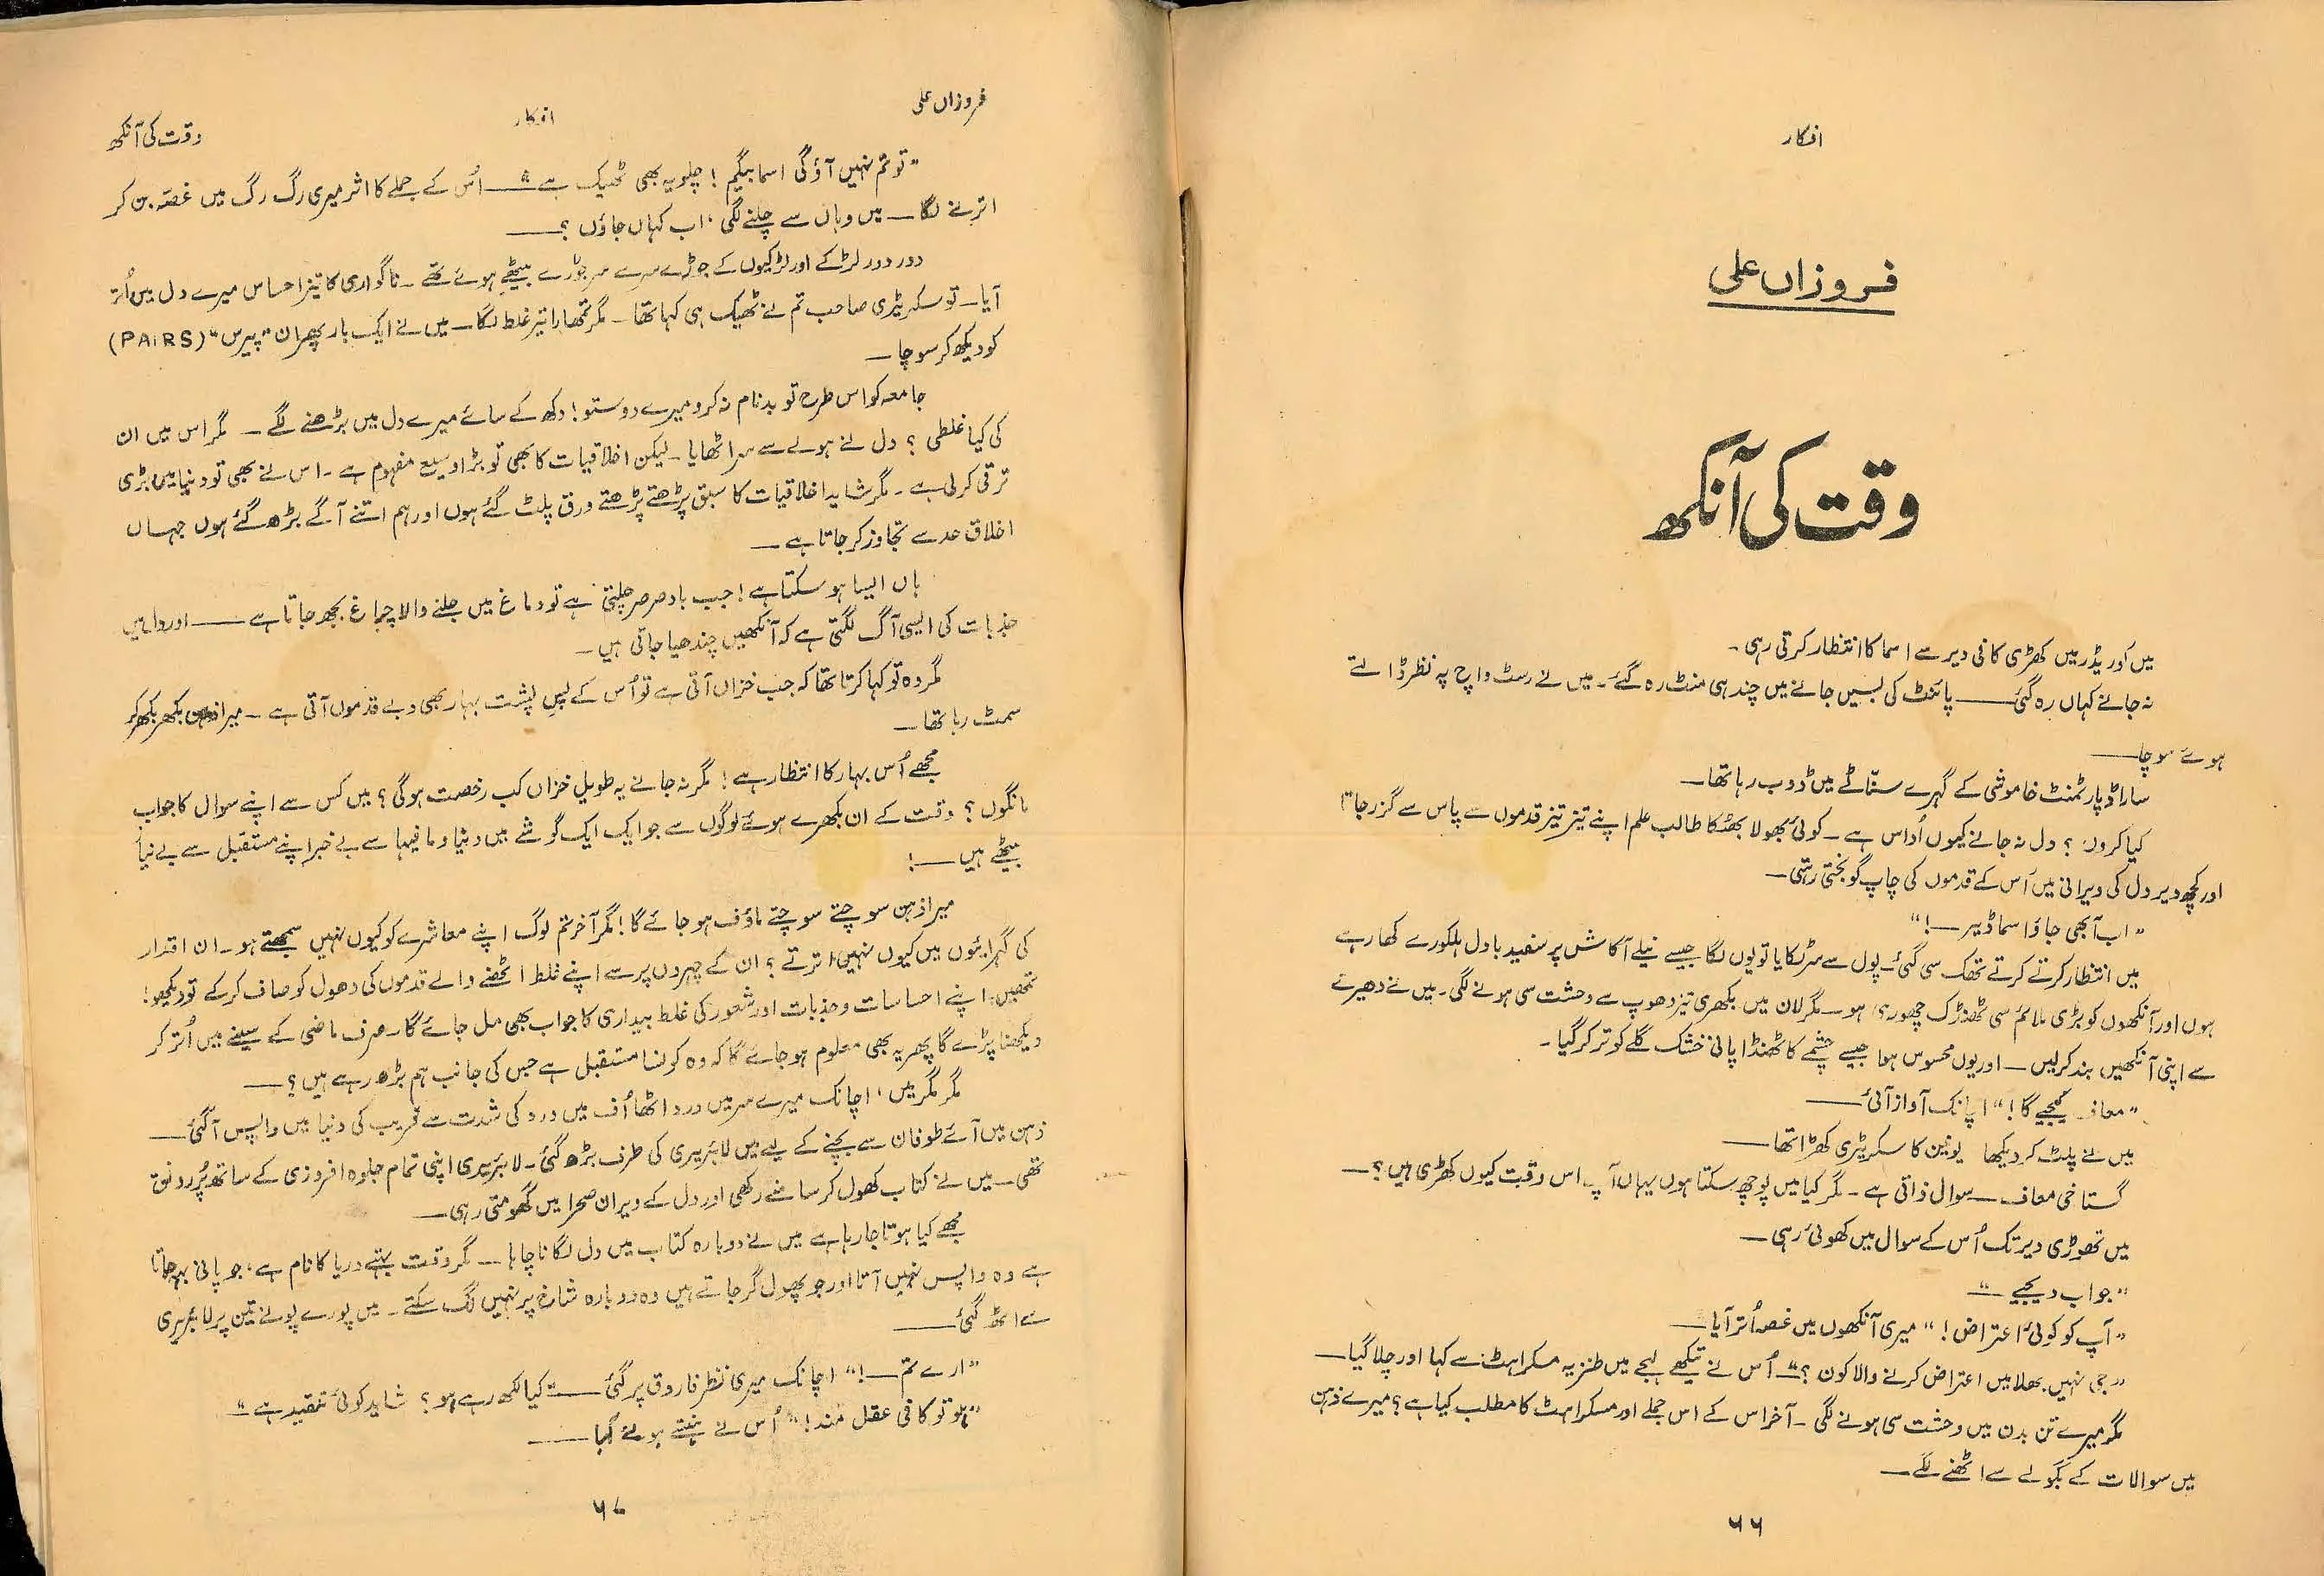 افکار
فروزاں علی
وقت کی آنکھ
میں کوریڈر میں کھڑی کافی دیر سے اسما کا انتظار کرتی رہی۔
نہ جانے کہاں رہ گئی ـــــ پائنٹ کی بسیں جانے میں چند ہی منٹ رہ گئے۔ میں نے رسٹ واچ پہ نظر ڈالتے
ہوئے سوچا ـــــ
سارا ڈپارٹمنٹ خاموشی کے گہرے سنّاٹے میں ڈوب رہا تھا ـ
کیا کروں ؟ دل نہ جانے کیوں اُداس ہے ـ کوئی بھولا بھٹکا طالب علم اپنے تیز تیز قدموں سے پاس سے گزر جاتا
اور کچھ دیر دل کی ویرانی میں اُس کے قدموں کی چاپ گونجتی رہتی ـ
”اب آ بھی جاؤ اسما ڈیر ـــ!“
میں انتظار کرتے کرتے تھک سی گئی ـ پول سے سر ٹکایا تو یوں لگا جیسے نیلے آکاش پر سفید بادل ہلکورے کھا رہے
ہوں اور آنکھوں کو بڑی ملائم سی ٹھنڈک چھو رہی ہو ـ مگر لان میں بکھری تیز دھوپ سے وحشت سی ہونے لگی ـ میں نے دھیرے
سے اپنی آنکھیں بند کر لیں ـ اور یوں محسوس ہوا جیسے چشمے کا ٹھنڈا پانی خشک گلے کو تر کر گیا ـ
”معاف کیجیے گا!“ اچانک آواز آئی ـــــ
میں نے پلٹ کر دیکھا یونین کا سکریٹری کھڑا تھا ـــــ
گستاخی معاف ـــ سوال ذاتی ہے ـ مگر کیا میں پوچھ سکتا ہوں یہاں آپ اس وقت کیوں کھڑی ہیں؟ ـــ
میں تھوڑی دیر تک اُس کے سوال میں کھوئی رہی ـــ
”جواب دیجیے ـــ“
”آپ کو کوئی اعتراض!“ میری آنکھوں میں غصہ اُتر آیا ـــ
”جی نہیں بھلا میں اعتراض کرنے والا کون ؟“ اُس نے تیکھے لہجے میں طنزیہ مسکراہٹ سے کہا اور چلا گیا ـــ
مگر میرے تن بدن میں وحشت سی ہونے لگی ـ آخر اس کے اس جملے اور مسکراہٹ کا مطلب کیا ہے؟ میرے ذہن
میں سوالات کے بگولے سے اٹھنے لگے ـــ
۶۶
فروزاں علی
افکار
وقت کی آنکھ
”تو تم نہیں آؤ گی اسما بیگم! چلو یہ بھی ٹھیک ہے ـــ“ اُس کے جملے کا اثر میری رگ رگ میں غصّہ بن کر
اترنے لگا ـــ میں وہاں سے چلنے لگی، اب کہاں جاؤں ؟ ـــــ
دور دور لڑکے اور لڑکیوں کے جوڑے سر سے سر جوڑے بیٹھے ہوئے تھے ـ ناگواری کا تیز احساس میرے دل میں اُتر
آیا ـ تو سکریٹری صاحب تم نے ٹھیک ہی کہا تھا ـ مگر تمھارا تیر غلط لگا ـ میں نے ایک بار پھر ان ”پیرس“ (PAIRS)
کو دیکھ کر سوچا ـ
جامعہ کو اس طرح تو بدنام نہ کرو میرے دوستو! دکھ کے سائے میرے دل میں بڑھنے لگے ـ مگر اس میں ان
کی کیا غلطی ؟ دل نے ہولے سے سر اٹھایا ـ لیکن اخلاقیات کا بھی تو بڑا وسیع مفہوم ہے ـ اس نے بھی تو دنیا میں بڑی
ترقی کر لی ہے ـ مگر شاید اخلاقیات کا سبق پڑھتے پڑھتے ورق پلٹ گئے ہوں اور ہم اتنے آگے بڑھ گئے ہوں جہاں
اخلاق حد سے تجاوز کر جاتا ہے ـــ
ہاں ایسا ہو سکتا ہے! جب بادِ صرصر چلتی ہے تو دماغ میں جلنے والا چراغ بجھ جاتا ہے ـــــ اور دل میں
جذبات کی ایسی آگ لگتی ہے کہ آنکھیں چندھیا جاتی ہیں ـ
مگر وہ تو کہا کرتا تھا کہ جب خزاں آتی ہے تو اُس کے پسِ پشت بہار بھی دبے قدموں آتی ہے ـ میرا ذہن بکھر بکھر کر
سمٹ رہا تھا ـ
مجھے اُس بہار کا انتظار ہے! مگر نہ جانے یہ طویل خزاں کب رخصت ہوگی؟ میں کس سے اپنے سوال کا جواب
مانگوں ؟ وقت کے ان بکھرے ہوئے لوگوں سے جو ایک ایک گوشے میں دنیا و مافیہا سے بے خبر اپنے مستقبل سے بے نیاز
بیٹھے ہیں ـــ!
میرا ذہن سوچتے سوچتے ماؤف ہو جائے گا! مگر آخر تم لوگ اپنے معاشرے کو کیوں نہیں سمجھتے ہو ـ ان اقدار
کی گہرائیوں میں کیوں نہیں اترتے ؟ ان کے چہروں پر سے اپنے غلط اٹھنے والے قدموں کی دھول کو صاف کر کے تو دیکھو!
تمھیں اپنے احساسات و جذبات اور شعور کی غلط بیداری کا جواب بھی مل جائے گا ـ صرف ماضی کے سینے میں اُتر کر
دیکھنا پڑے گا پھر یہ بھی معلوم ہو جائے گا کہ وہ کونسا مستقبل ہے جس کی جانب ہم بڑھ رہے ہیں ؟ ـــ
مگر مگر میں، اچانک میرے سر میں درد اٹھا اُف میں درد کی شدت سے قریب کی دنیا میں واپس آ گئی ـــ
ذہن میں آئے طوفان سے بچنے کے لیے میں لائبریری کی طرف بڑھ گئی ـ لائبریری اپنی تمام جلوہ افروزی کے ساتھ پُر رونق
تھی ـ میں نے کتاب کھول کر سامنے رکھی اور دل کے ویران صحرا میں گھومتی رہی ـــ
مجھے کیا ہوتا جا رہا ہے میں نے دوبارہ کتاب میں دل لگانا چاہا ـــ مگر وقت بہتے دریا کا نام ہے، جو پانی بہہ جاتا
ہے وہ واپس نہیں آتا اور جو پھول گر جاتے ہیں وہ دوبارہ شاخ پر نہیں لگ سکتے ـ میں پورے پونے تین پر لائبریری
سے اٹھ گئی ـــــ
”ارے تم ـــ!“ اچانک میری نظر فاروق پر گئی ـــ ”کیا لکھ رہے ہو ؟ شاید کوئی تنقید ہے ـ“
”ہو تو کافی عقل مند!“ اُس نے ہنستے ہوئے کہا ـــــ
۶۷